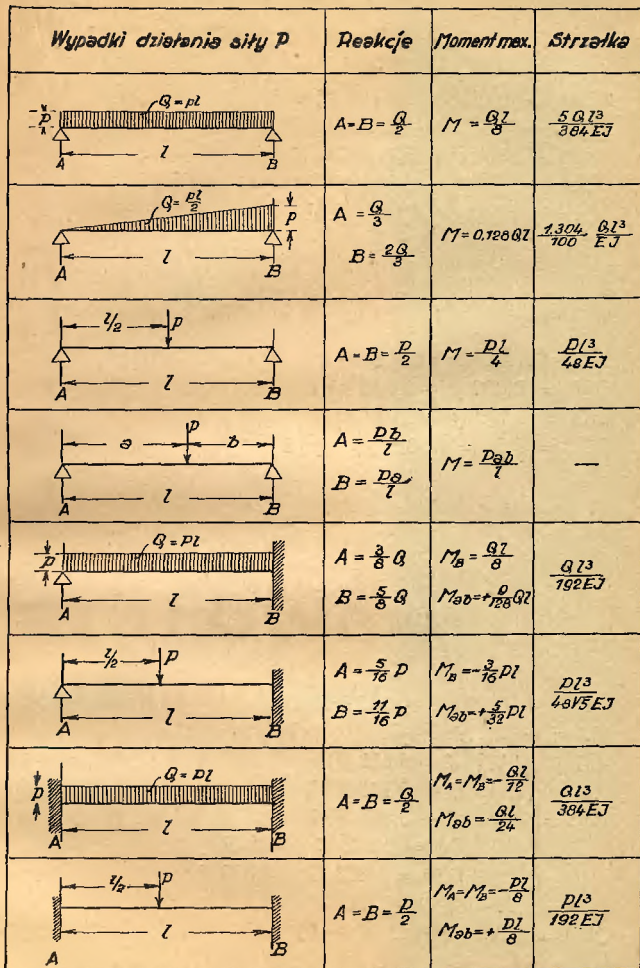 Wypadki działania siły P | Reakcje | Moment max. | Strzałka
Q = pl
p
A l B
A = B = Q/2
M = Ql/8
5 Ql³/384 EJ
Q = pl/2
p
A l B
A = Q/3
B = 2Q/3
M = 0,128 Ql
1,304/100 Ql³/EJ
l/2 P
A l B
A = B = P/2
M = Pl/4
Pl³/48EJ
a P b
A l B
A = Pb/l
B = Pa/l
M = Pab/l
—
Q = pl
p
A l B
A = 3/8 Q
B = 5/8 Q
M_B = Ql/8
M_ab = + 9/128 Ql
Ql³/192EJ
l/2 P
A l B
A = 5/16 P
B = 11/16 P
M_B = - 3/16 Pl
M_ab = + 5/32 Pl
Pl³/48√5 EJ
Q = pl
p
A l B
A = B = Q/2
M_A = M_B = - Ql/12
M_ab = Ql/24
Ql³/384EJ
l/2 P
A l B
A = B = P/2
M_A = M_B = - Pl/8
M_ab = + Pl/8
Pl³/192EJ